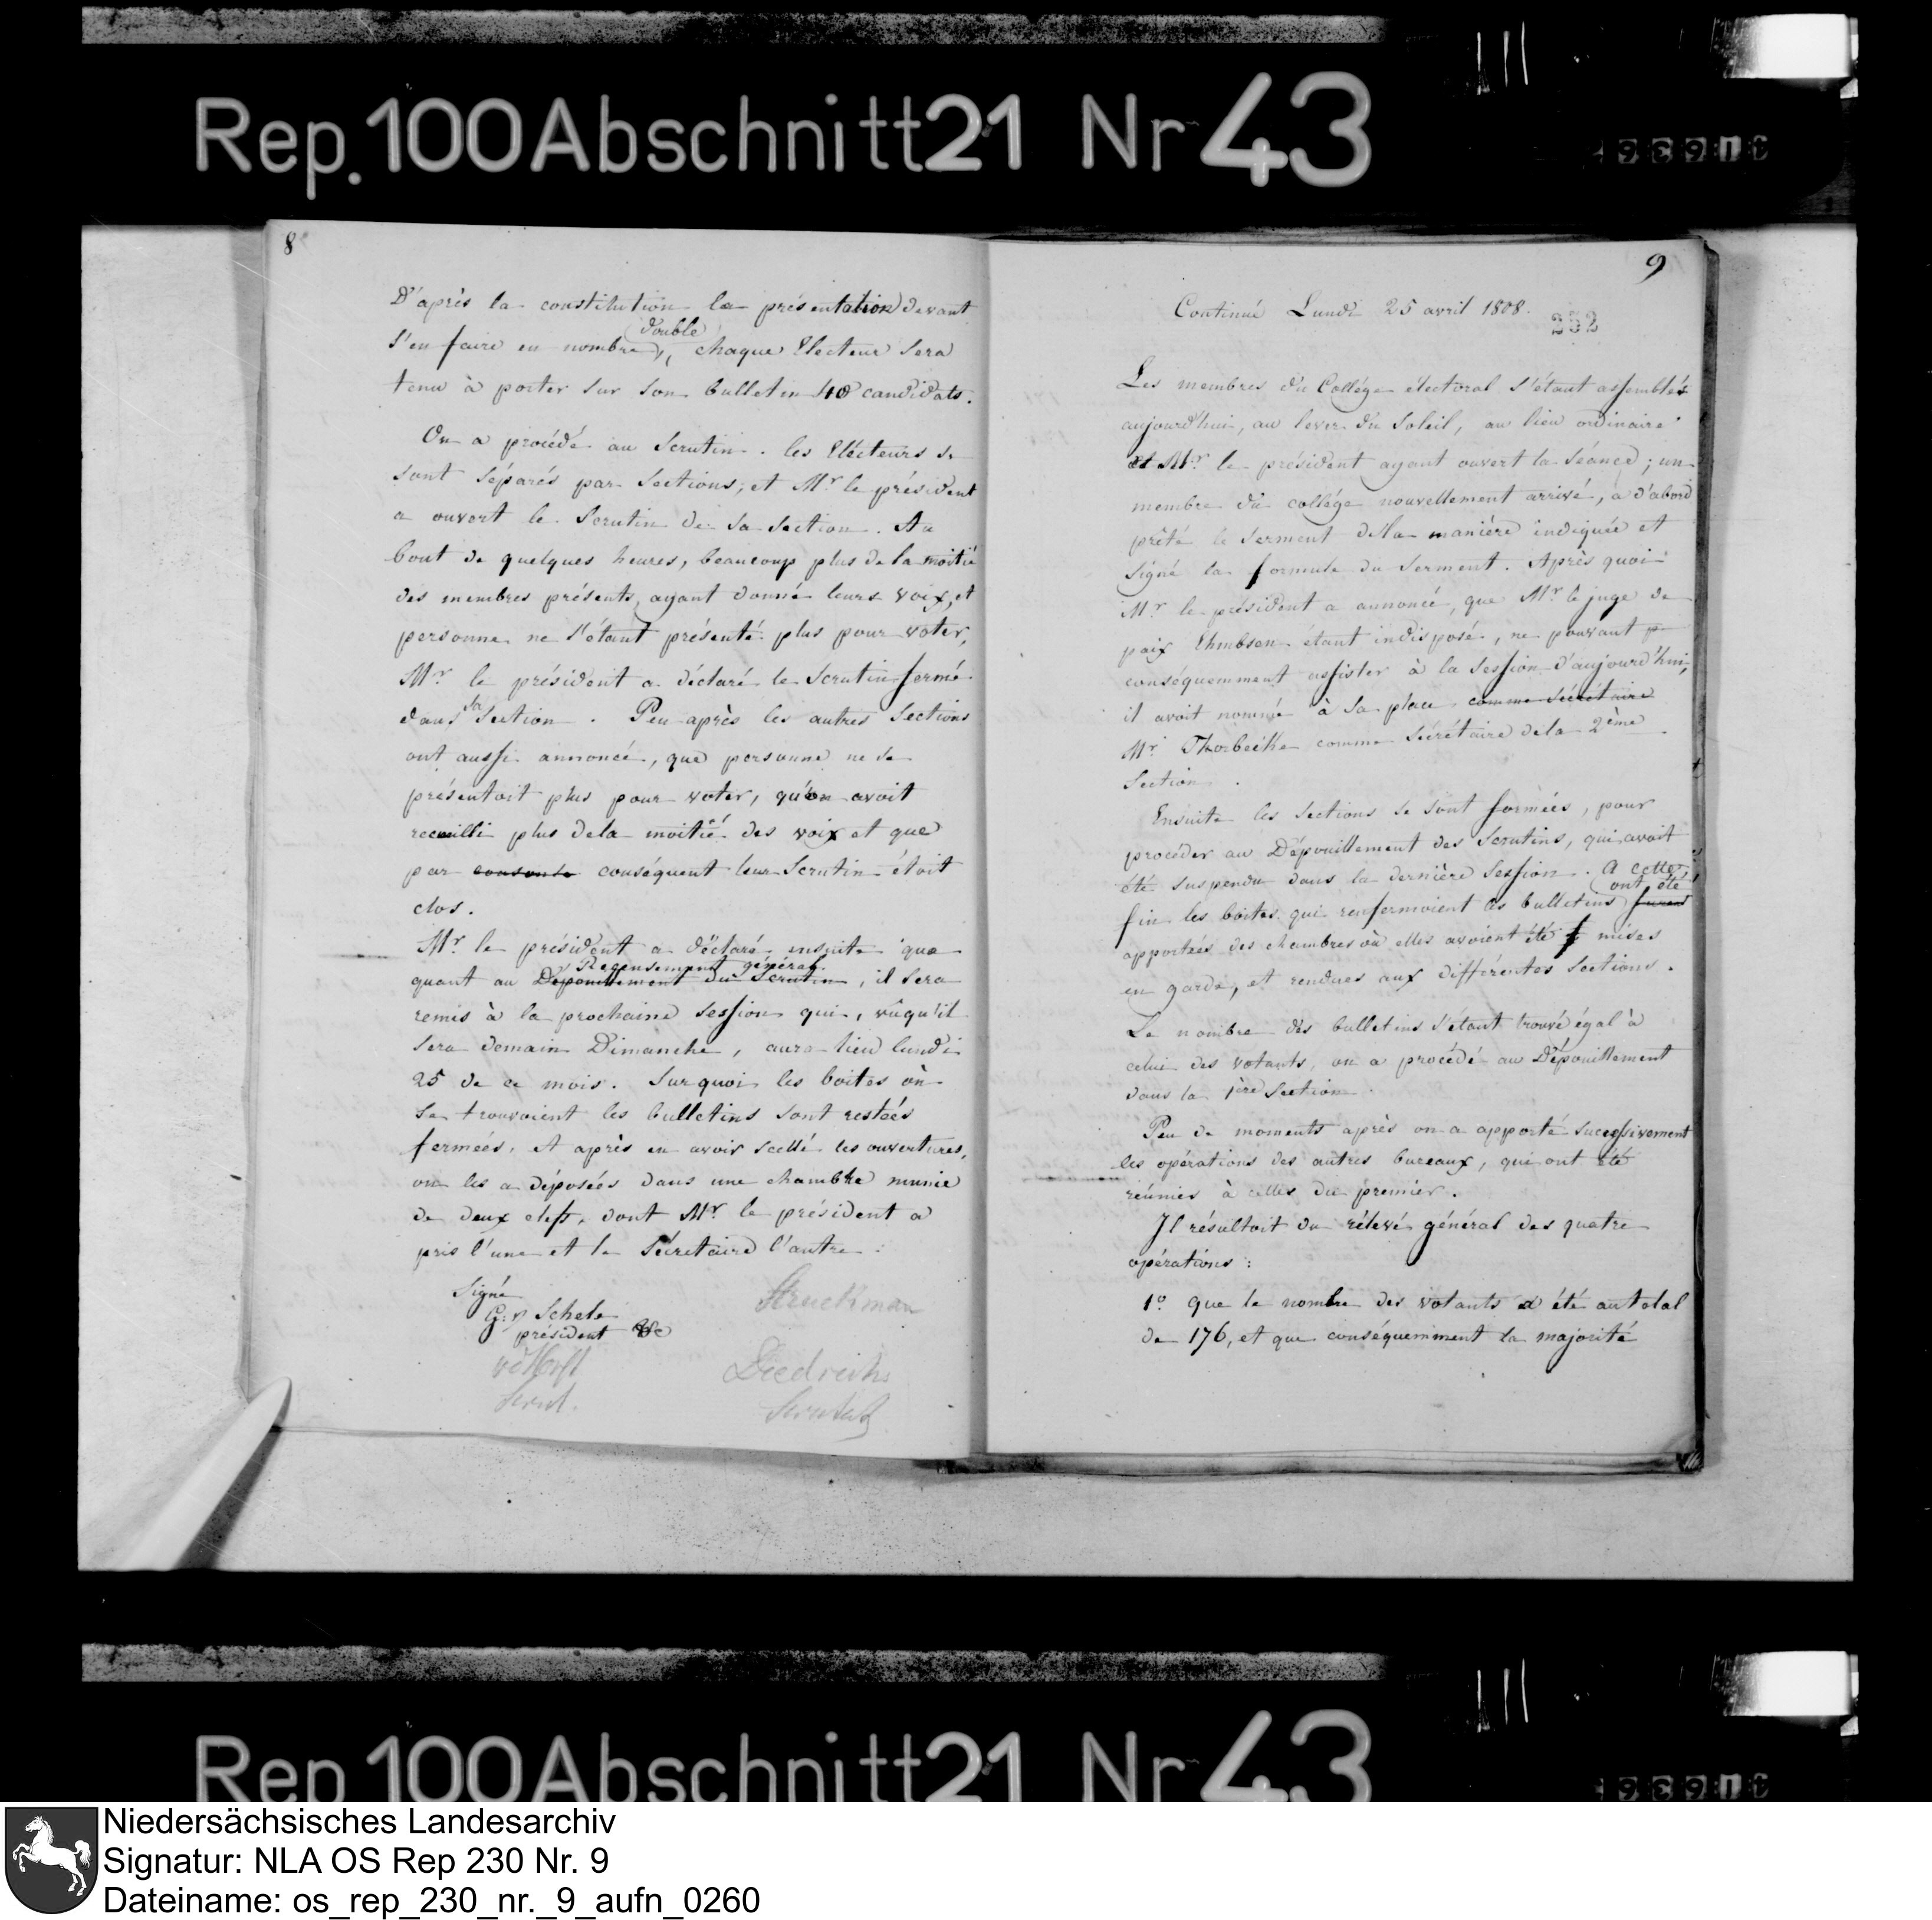 Rep.100Abschnitt21 Nr43
8
D'après la constitution la présentation devant
double
s'en faire en nombre, chaque Electeur sera
tenu à porter sur son bulletin 40 candidats.
On a procédé au scrutin. les Electeurs se
sont séparés par sections; et Mr le président
a ouvert le scrutin de sa section. Au
bout de quelques heures, beaucoup plus de la moitié
des membres présents, ayant donné leurs voix, et
personne ne s'étant présenté plus pour voter,
Mr le président a déclaré le scrutin fermé
dans sa section. Peu après les autres sections
ont aussi annoncé, que personne ne se
présentoit plus pour voter, qu'on avoit
recueilli plus dela moitié des voix et que
par conséquent leur scrutin étoit
clos.
Mr le président a déclaré ensuite que
Recensement général
quant au Dépouillement du Scrutin, il sera
remis à la prochaine session qui, vuqu'il
sera demain Dimanche, aura lieu lundi
25 de ce mois. Surquoi les boites où
se trouvoient les bulletins sont restées
fermées, et après en avoir scellé les ouvertures,
on les a déposées dans une chambre munie
de deux clefs, dont Mr le président a
pris l'une et le Sécretaire l'autre.
Signé
G: v Schele
président
Struckman
Diedrichs
9
Continué Lundi 25 avril 1808.
252
Les membres du Collége électoral s'étant assemblés
aujourd'hui, au lever du Soleil, au lieu ordinaire
et Mr le président ayant ouvert la séance; un
membre du collége nouvellement arrivé, a d'abord
prêté le serment dela manière indiquée et
signé la formule du serment. Après quoi
Mr le président a annoncé, que Mr le juge de
paix étant indisposé, ne pouvant p
conséquemment assister à la session d'aujourd'hui,
il avoit nommé à sa place comme sécrétaire
Mr Thorbecke comme sécrétaire dela 2ème
Section.
Ensuite les sections se sont formées, pour
procéder au Dépouillement des scrutins, qui avoit
été suspendu dans la dernière session. A cette
ont été
fin les boites qui renfermoient les bulletins furent
apportées des chambres où elles avoient été mises
en garde, et rendues aux différentes sections.
Le nombre des bulletins s'étant trouvé égal à
celui des votants, on a procédé au Dépouillement
dans la 1ère section.
Peu de moments après on a apporté successivement
les opérations des autres bureaux, qui ont été
réunies à celles du premier.
Il résultoit du rélevé général des quatre
opérations:
1° que le nombre des votants a été au total
de 176, et que conséquemment la majorité
Rep 100Abschnitt21 Nr 43
Niedersächsisches Landesarchiv
Signatur: NLA OS Rep 230 Nr. 9
Dateiname: os_rep_230_nr._9_aufn_0260